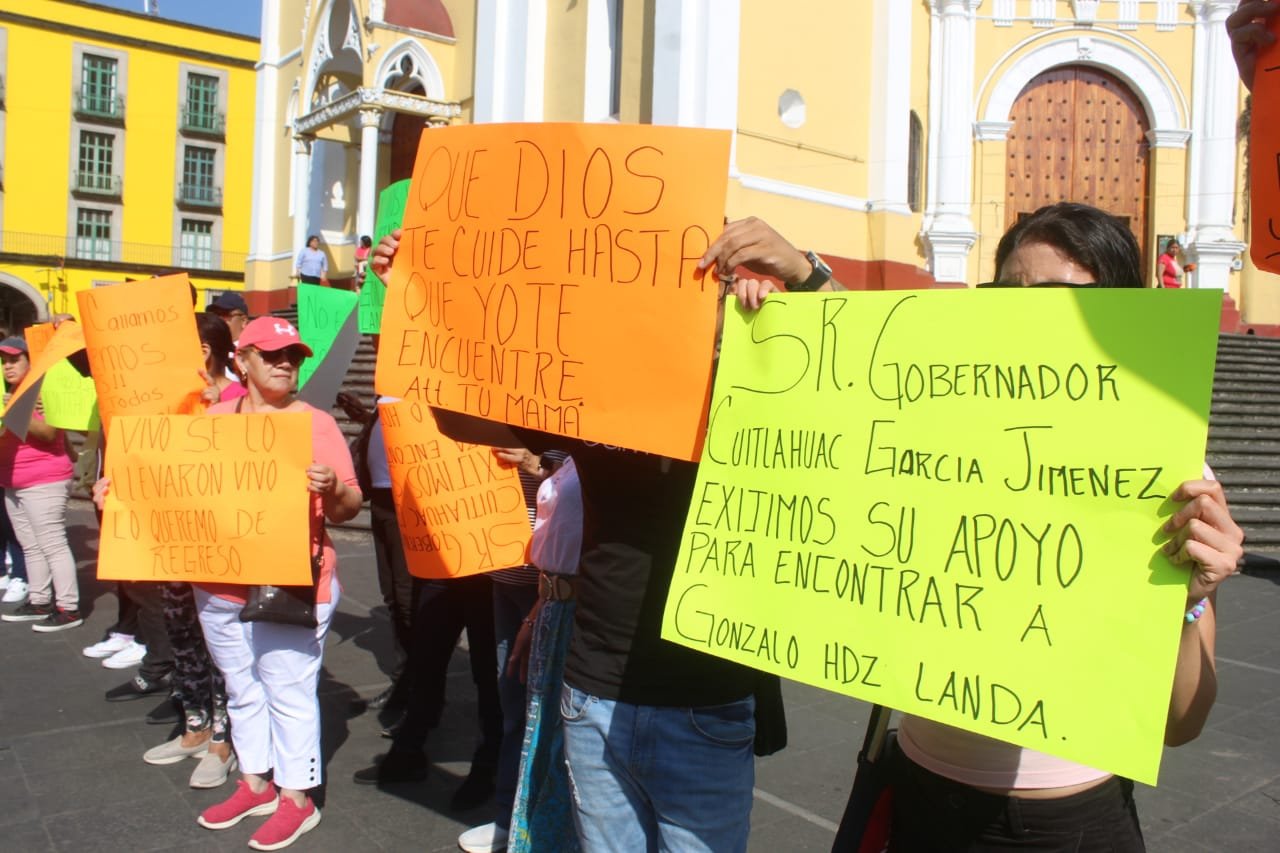 Callamos
mos
Todos
VIVO SE LO
LLEVARON VIVO
LO QUEREMO DE
REGRESO
QUE DIOS
TE CUIDE HASTA
QUE YOTE
ENCUENTRE.
Att. TU MAMÁ.
EXIJIMOS S
CUITLAHUAC
SR GOBER
NO E
SR. GOBERNADOR
CUITLAHUAC GARCIA JIMENEZ
EXIJIMOS SU APOYO
PARA ENCONTRAR A
GONZALO HDZ LANDA.